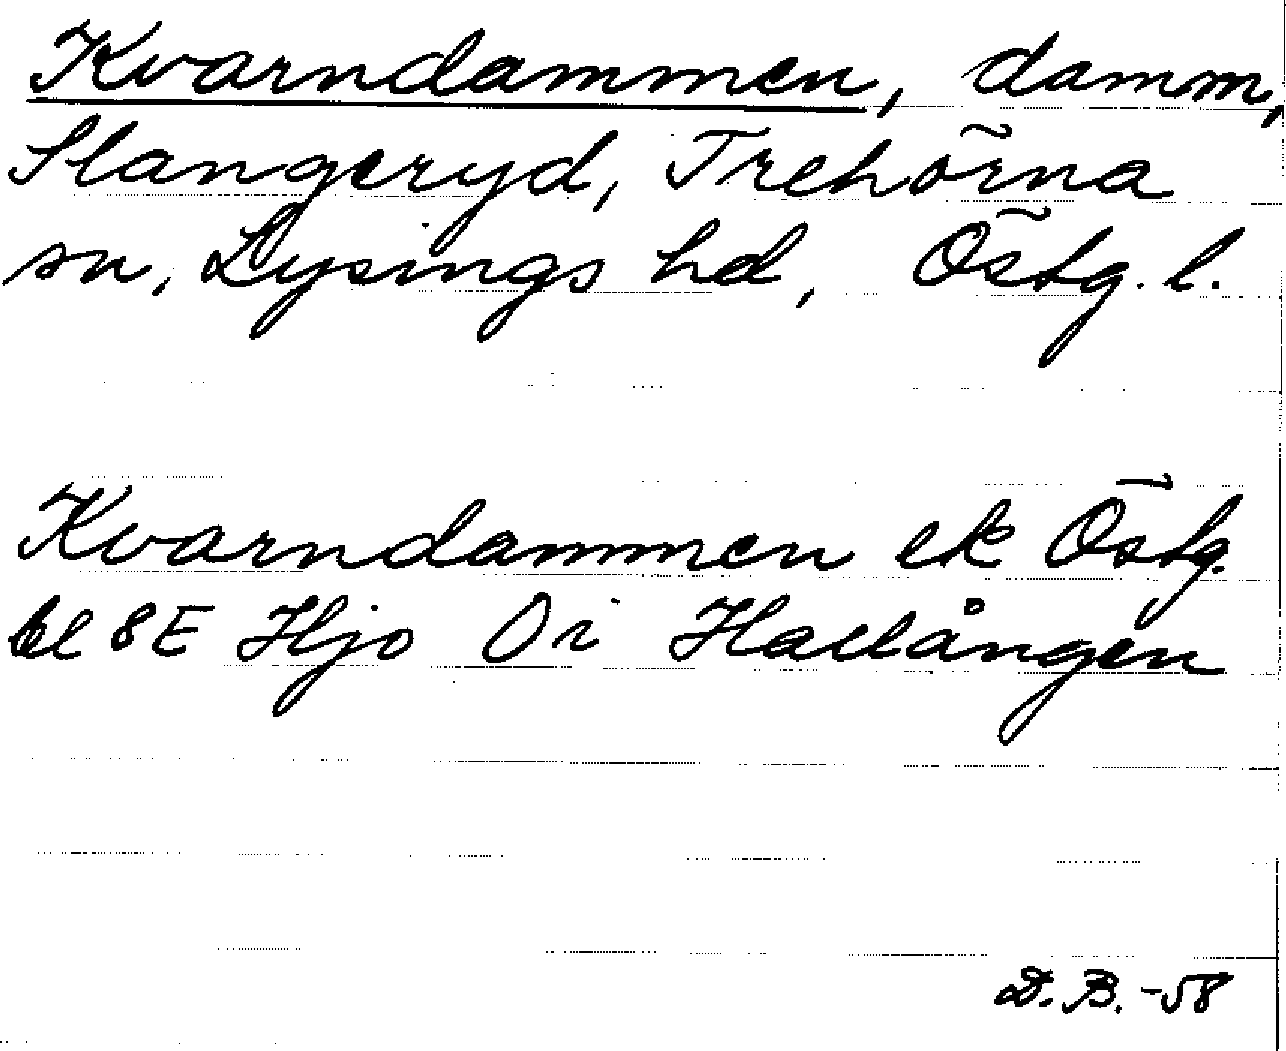 Kvarndammen, damm,
Slangeryd, Trehörna
sn, Lysings hd, Östg. l.
Kvarndammen ek Östg.
bl 8E Hjo Öi Hallången
D.B. -58